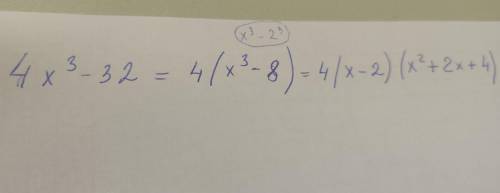 x³ - 2³
4x³ - 32 = 4(x³ - 8) = 4(x - 2)(x² + 2x + 4)